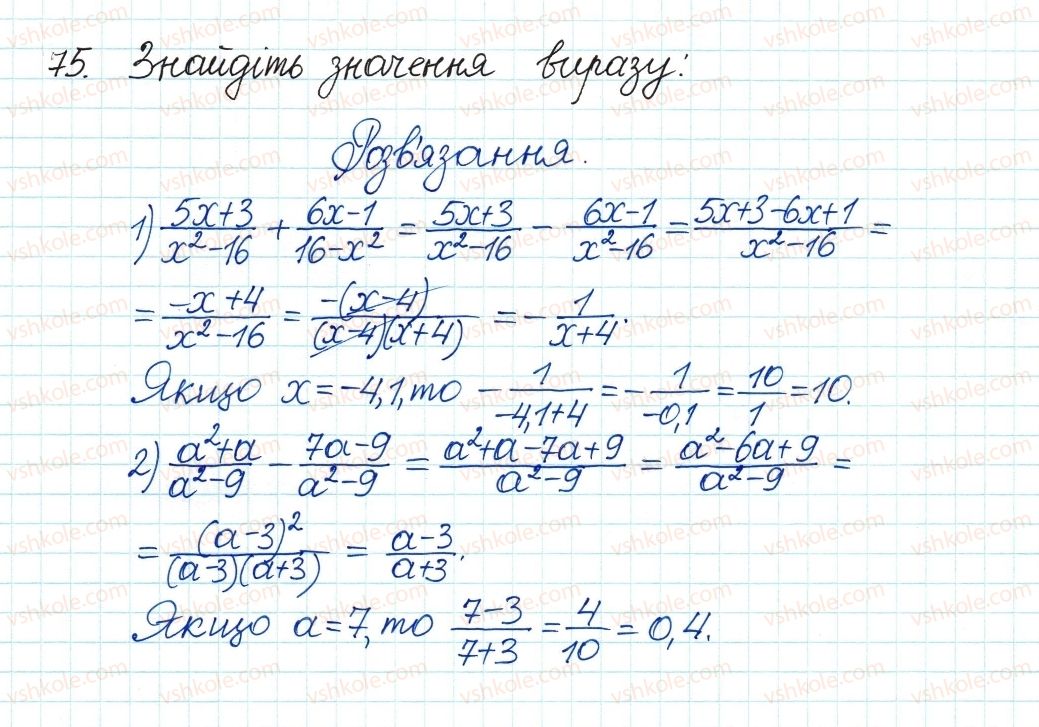 75. Знайдіть значення виразу:
Розв'язання.
1) (5x+3)/(x²-16) + (6x-1)/(16-x²) = (5x+3)/(x²-16) - (6x-1)/(x²-16) = (5x+3-6x+1)/(x²-16) =
= (-x+4)/(x²-16) = (-(x-4))/((x-4)(x+4)) = - 1/(x+4).
Якщо x=-4,1, то - 1/(-4,1+4) = - 1/(-0,1) = 10/1 = 10.
2) (a²+a)/(a²-9) - (7a-9)/(a²-9) = (a²+a-7a+9)/(a²-9) = (a²-6a+9)/(a²-9) =
= (a-3)²/((a-3)(a+3)) = (a-3)/(a+3).
Якщо a=7, то (7-3)/(7+3) = 4/10 = 0,4.